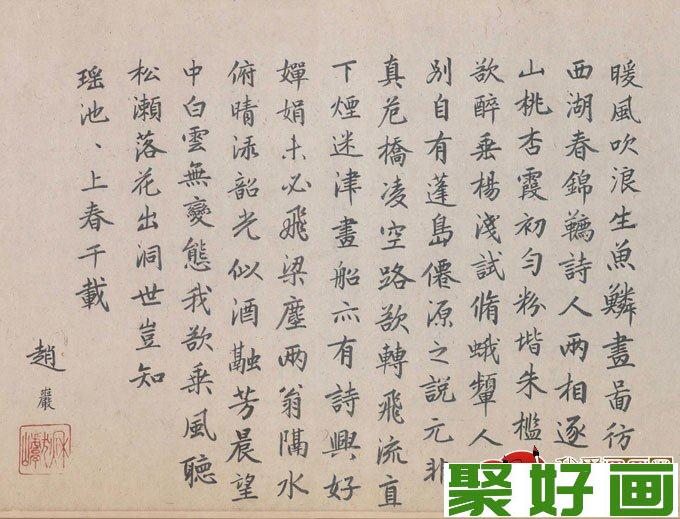 暖風吹浪生魚鱗畫啚彷
西湖春錦韉詩人兩相逐
山桃杏霞初勻粉堦朱檻
欲醉垂楊淺試脩蛾顰人
別自有蓬島僊源之說元非
真危橋凌空路欲轉飛流直
下煙迷津畫船亦有詩興好
嬋娟未必飛梁塵兩翁隔水
俯晴淥韶光似酒融芳晨望
中白雲無變態我欲乗風聽
松瀨落花出洞世豈知
瑤池、上春千載
趙巖
聚好画